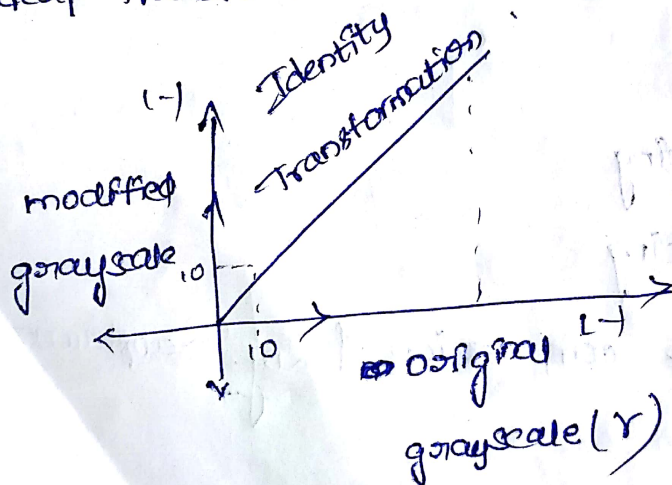 Identity
Transformation
(-)
modified
grayscale
10
10
L-1
original
grayscale (r)